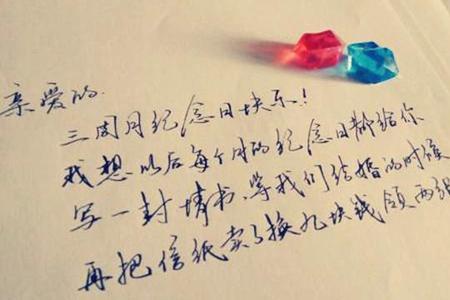 亲爱的
三周月纪念日快乐！
我想以后每个月的纪念日都给你
写一封情书，等我们结婚的时候
再把信纸卖了换九块钱领两张